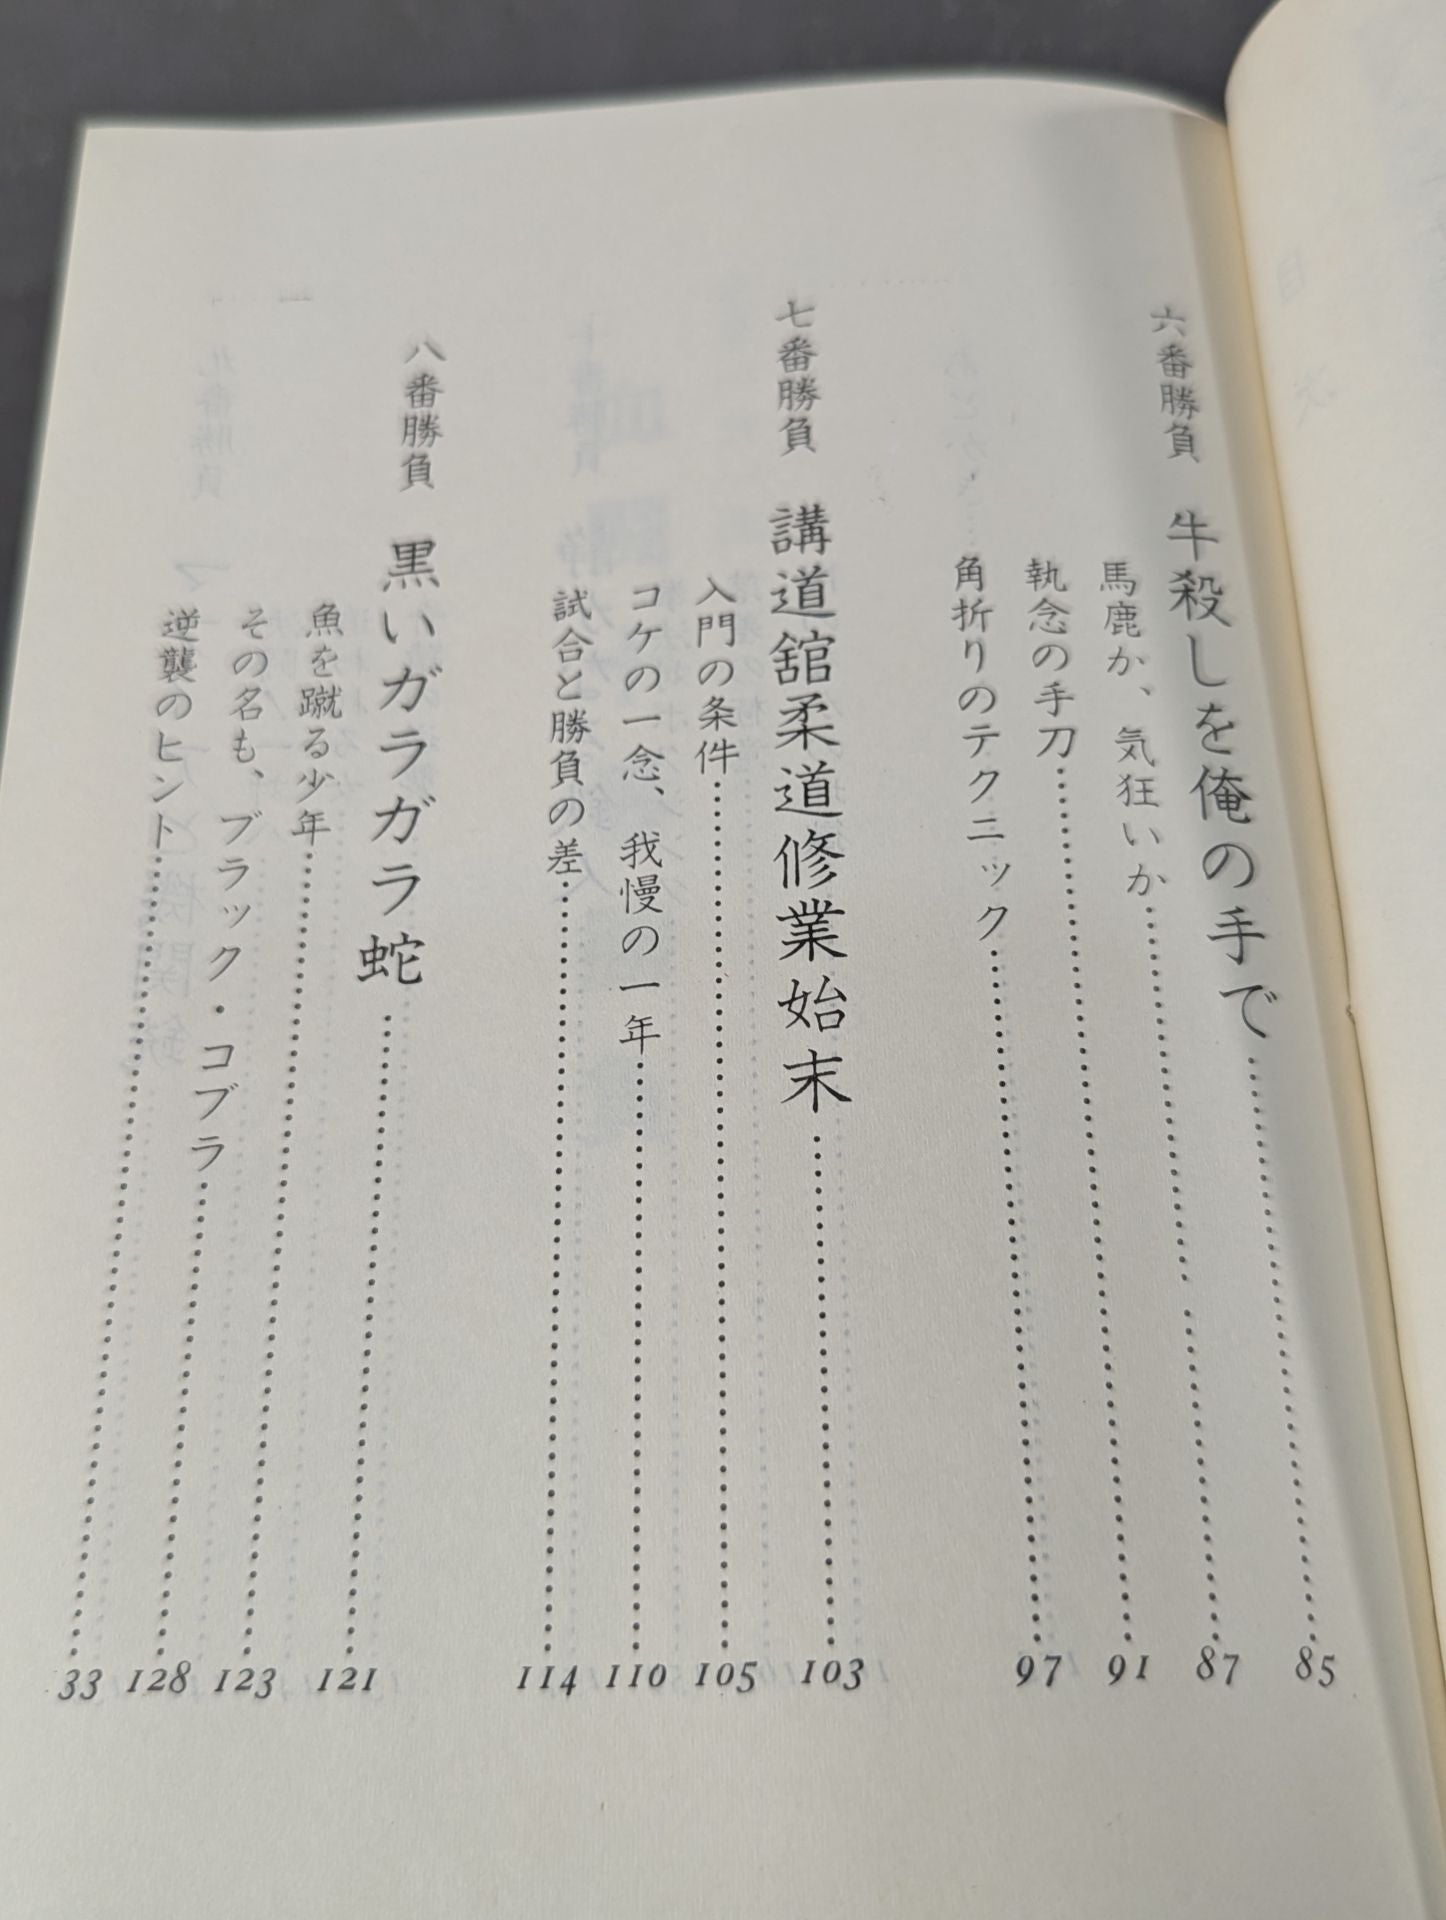 六番勝負　牛殺しを俺の手で……85
馬鹿か、気狂いか……87
執念の手刀……91
角折りのテクニック……97
七番勝負　講道舘柔道修業始末……103
入門の条件……105
コケの一念、我慢の一年……110
試合と勝負の差……114
八番勝負　黒いガラガラ蛇……121
魚を蹴る少年……123
その名も、ブラック・コブラ……128
逆襲のヒント……33